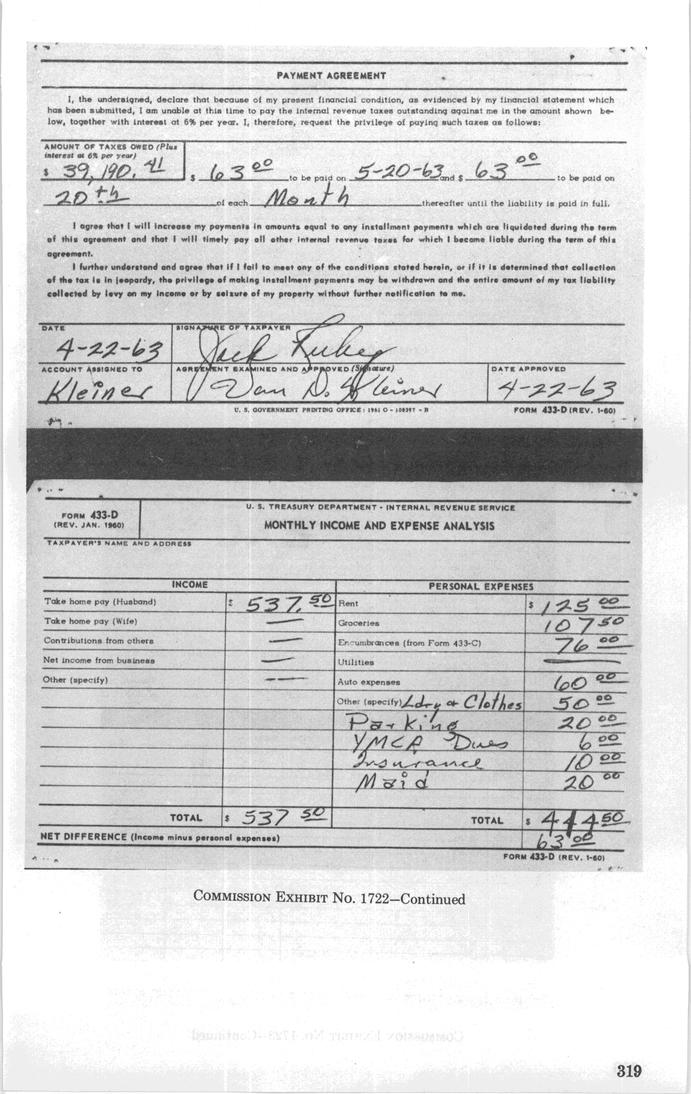 PAYMENT AGREEMENT
I, the undersigned, declare that because of my present financial condition, as evidenced by my financial statement which
has been submitted, I am unable at this time to pay the internal revenue taxes outstanding against me in the amount shown be-
low, together with interest at 6% per year. I, therefore, request the privilege of paying such taxes as follows:
AMOUNT OF TAXES OWED (Plus
interest at 6% per year)
$ 39,190.41 $ 63 00 to be paid on 5-20-63 and $ 63 00 to be paid on
20th of each Month thereafter until the liability is paid in full.
I agree that I will increase my payments in amounts equal to any installment payments which are liquidated during the term
of this agreement and that I will timely pay all other internal revenue taxes for which I become liable during the term of this
agreement.
I further understand and agree that if I fail to meet any of the conditions stated herein, or if it is determined that collection
of the tax is in jeopardy, the privilege of making installment payments may be withdrawn and the entire amount of my tax liability
collected by levy on my income or by seizure of my property without further notification to me.
DATE SIGNATURE OF TAXPAYER
4-22-63 Jack Ruby
ACCOUNT ASSIGNED TO AGREEMENT EXAMINED AND APPROVED (Signature) DATE APPROVED
Kleiner Van D. Kleiner 4-22-63
U. S. GOVERNMENT PRINTING OFFICE: 1961 O - FORM 433-D (REV. 1-60)
FORM 433-D
(REV. JAN. 1960)
U. S. TREASURY DEPARTMENT - INTERNAL REVENUE SERVICE
MONTHLY INCOME AND EXPENSE ANALYSIS
TAXPAYER'S NAME AND ADDRESS
INCOME PERSONAL EXPENSES
Take home pay (Husband) $ 537.50 Rent $ 125 00
Take home pay (Wife) — Groceries 107 50
Contributions from others — Encumbrances (from Form 433-C) 76 00
Net income from business — Utilities —
Other (specify) — Auto expenses 60 00
Other (specify) Ldry & Clothes 50 00
Parking 20 00
YMCA Dues 6 00
Insurance 10 00
Maid 20 00
TOTAL $ 537 50 TOTAL $ 444 50
NET DIFFERENCE (Income minus personal expenses) 63 00
FORM 433-D (REV. 1-60)
COMMISSION EXHIBIT NO. 1722—Continued
319